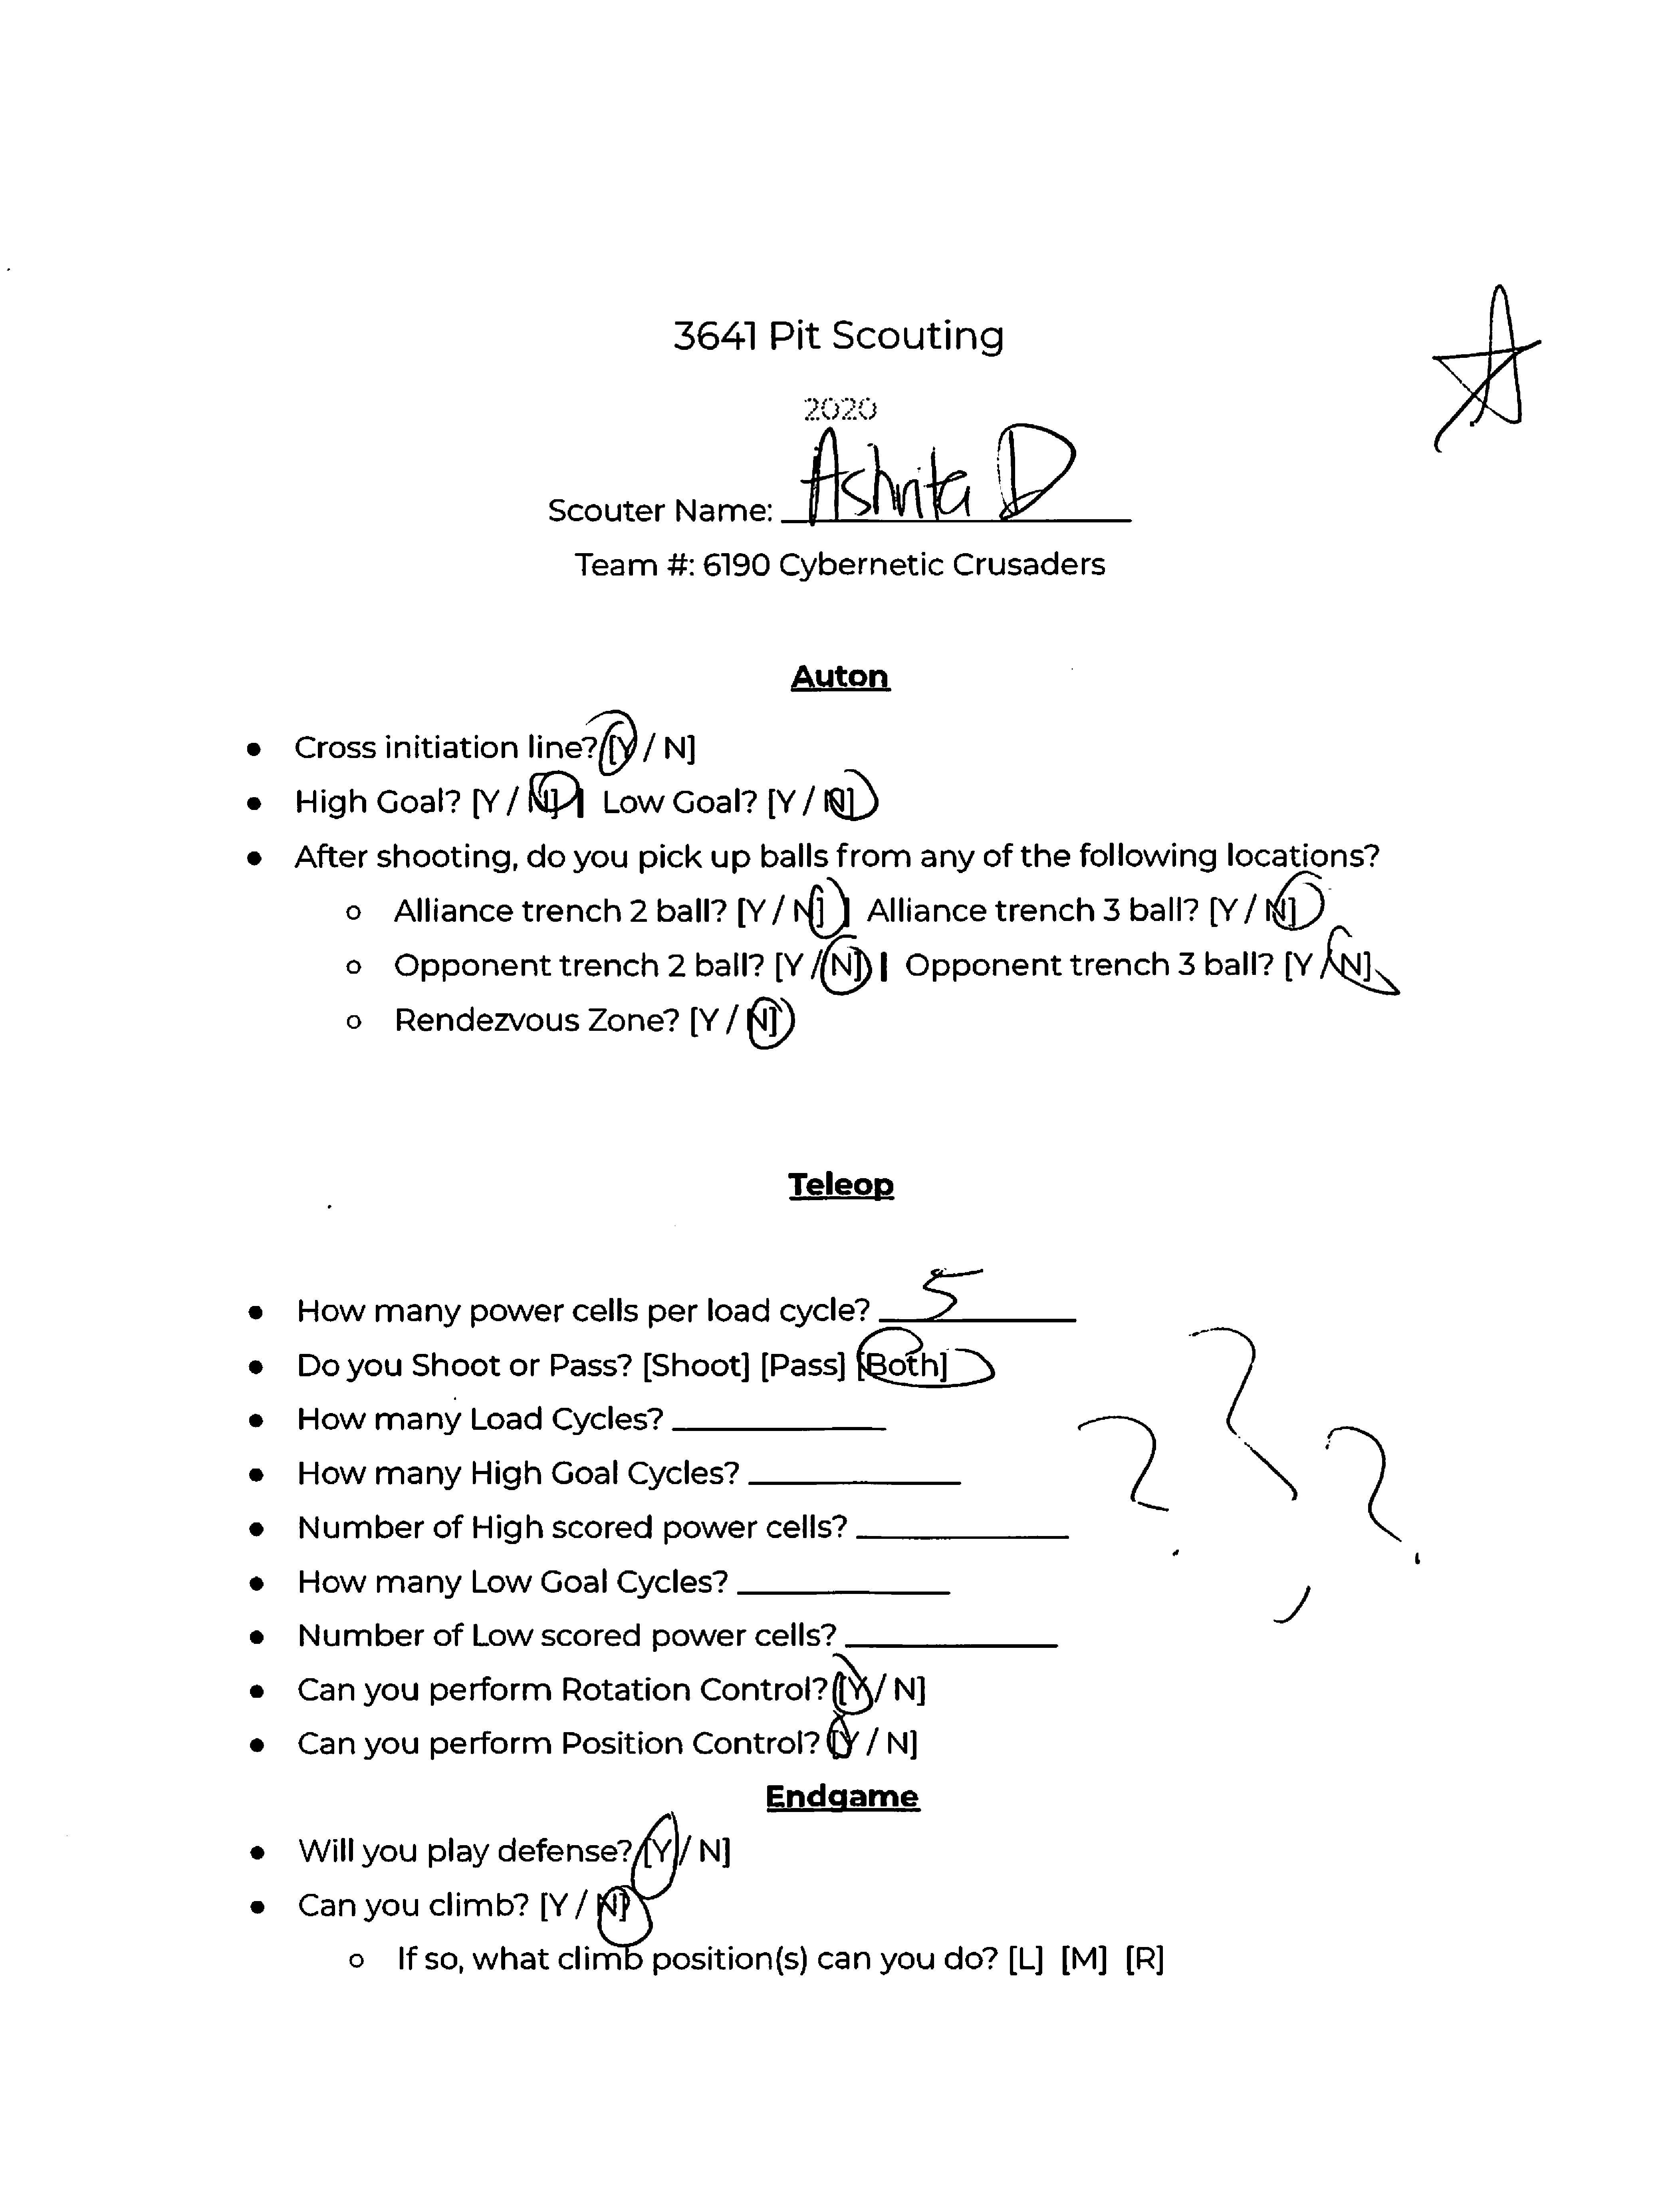 3641 Pit Scouting
2020
Scouter Name: Ashrita D
Team #: 6190 Cybernetic Crusaders
Auton
● Cross initiation line? [Y / N]
● High Goal? [Y / N] | Low Goal? [Y / N]
● After shooting, do you pick up balls from any of the following locations?
○ Alliance trench 2 ball? [Y / N] | Alliance trench 3 ball? [Y / N]
○ Opponent trench 2 ball? [Y / N] | Opponent trench 3 ball? [Y / N]
○ Rendezvous Zone? [Y / N]
Teleop
● How many power cells per load cycle? 5
● Do you Shoot or Pass? [Shoot] [Pass] [Both]
● How many Load Cycles? ________
● How many High Goal Cycles? ________
● Number of High scored power cells? ________
● How many Low Goal Cycles? ________
● Number of Low scored power cells? ________
? ? ?
● Can you perform Rotation Control? [Y / N]
● Can you perform Position Control? [Y / N]
Endgame
● Will you play defense? [Y / N]
● Can you climb? [Y / N]
○ If so, what climb position(s) can you do? [L] [M] [R]